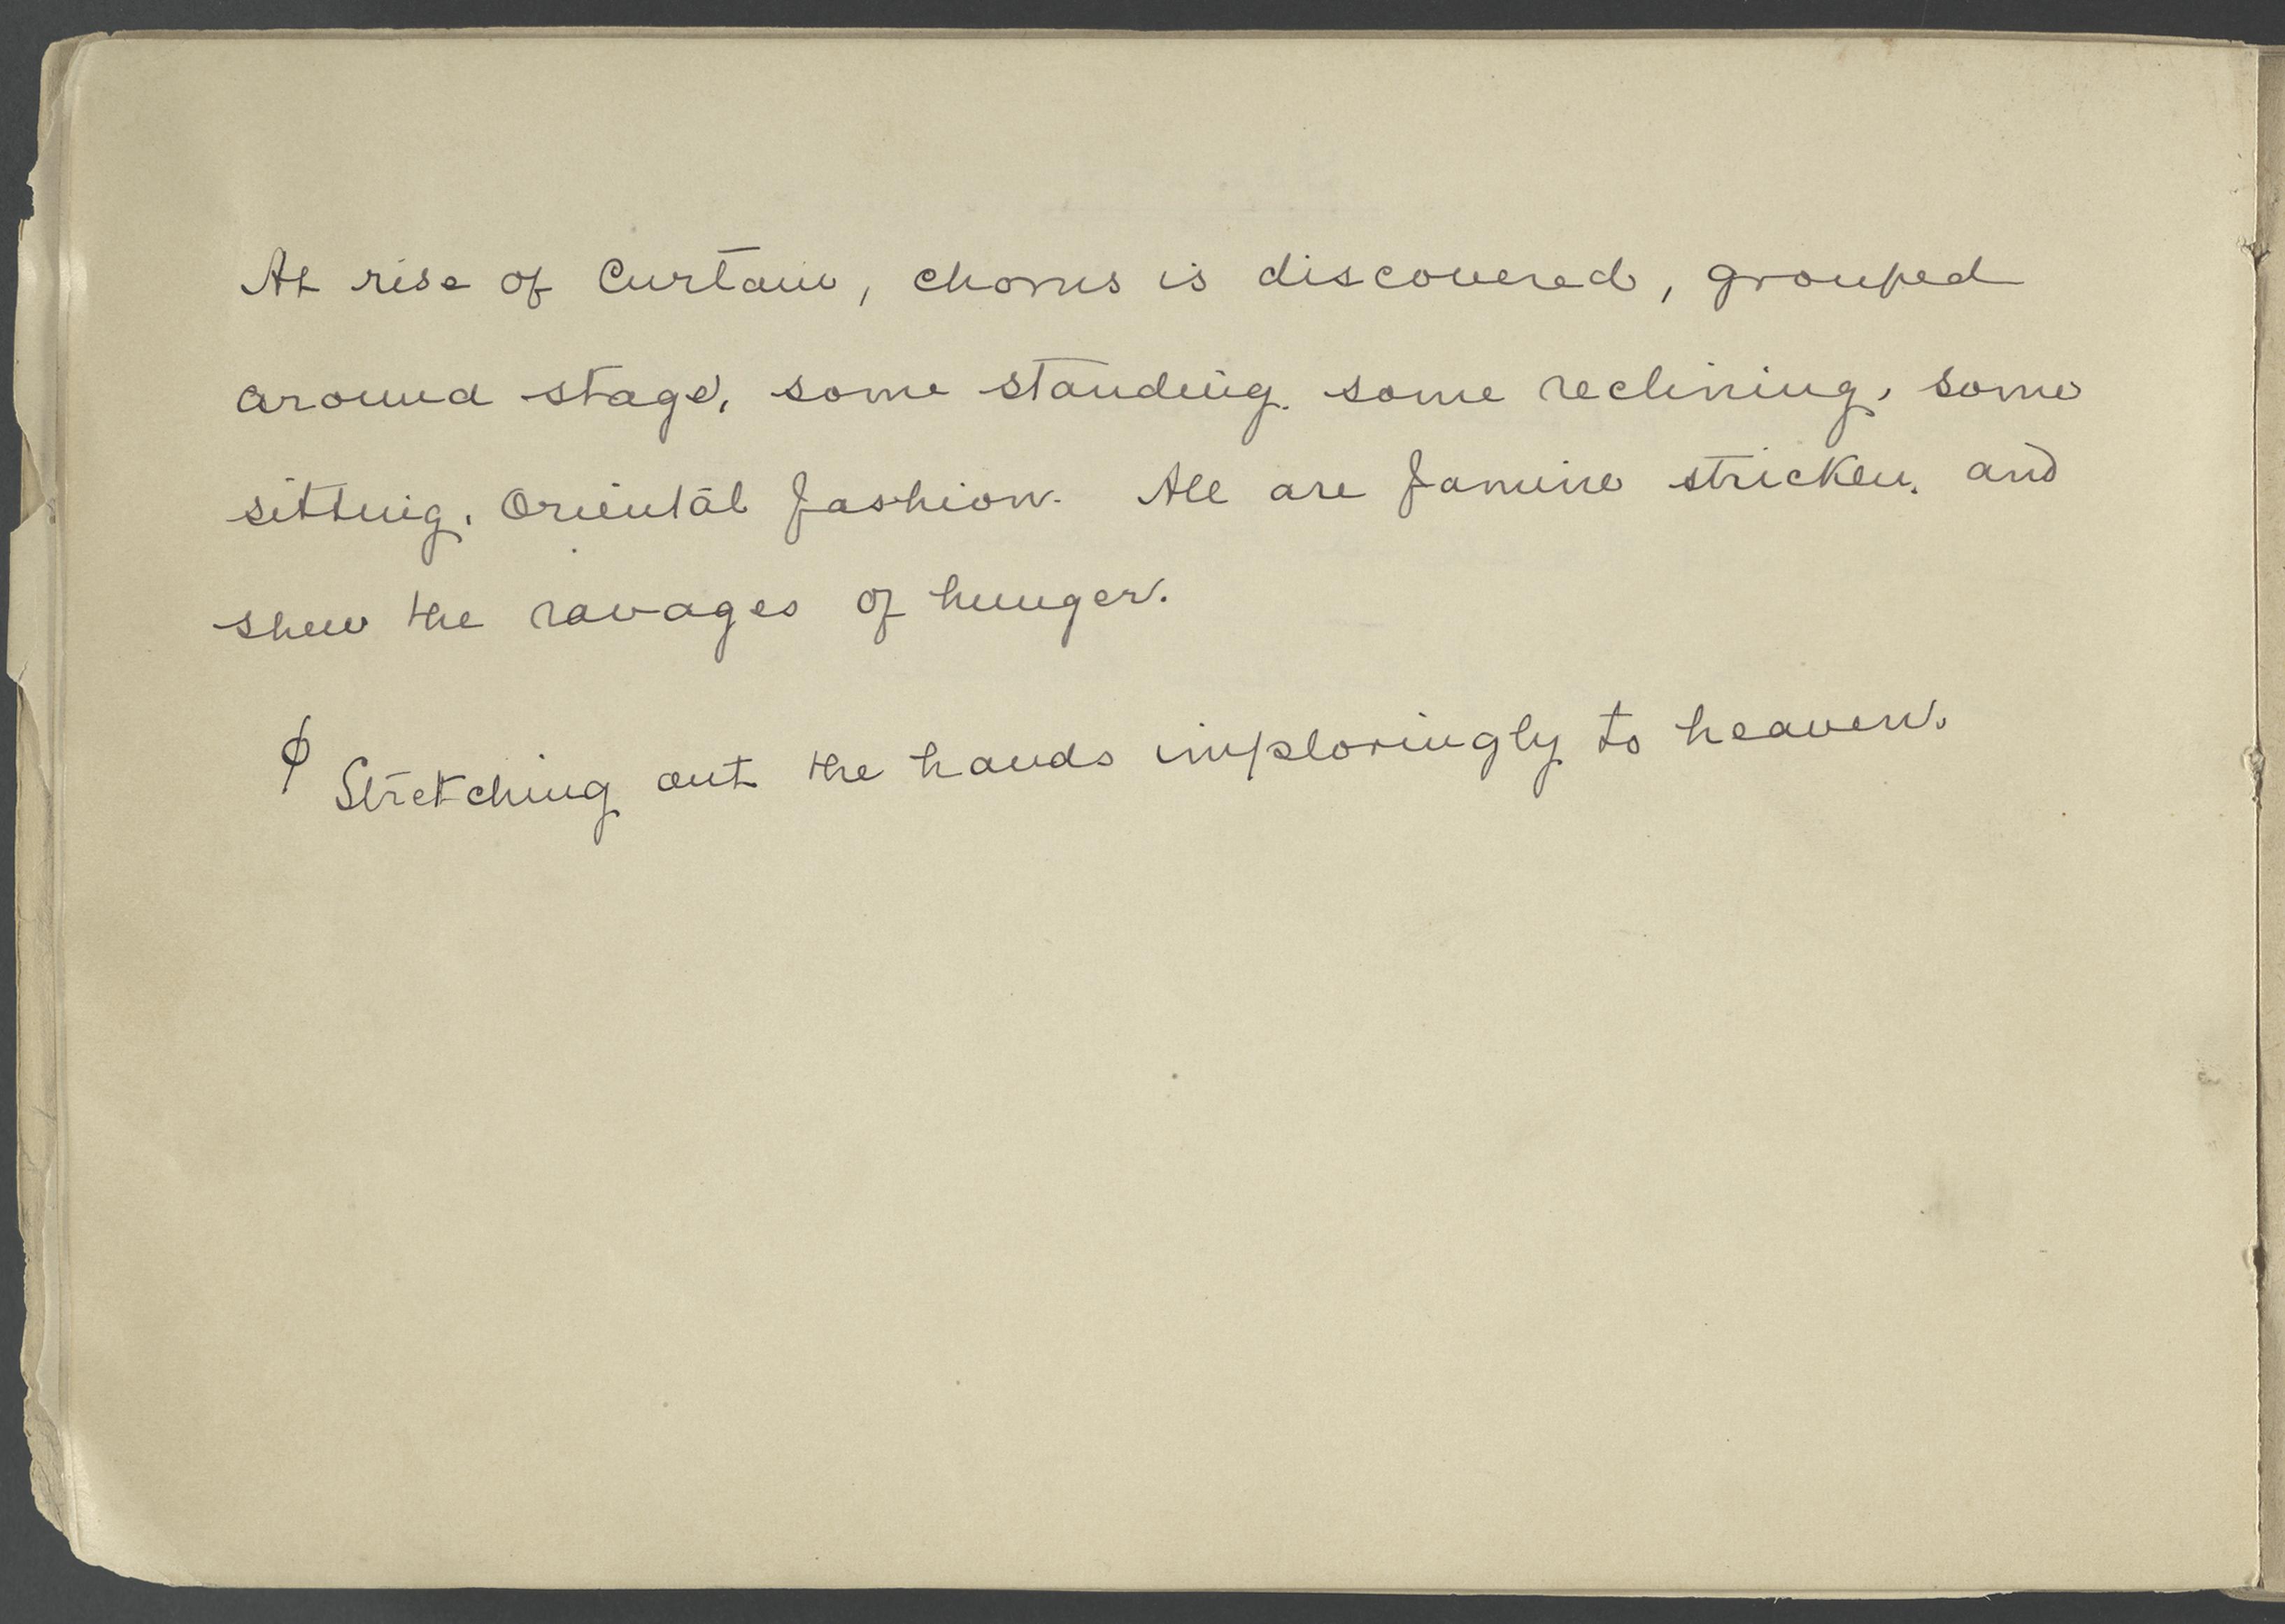 At rise of Curtain, chorus is discovered, grouped
around stage, some standing. some reclining, some
sitting, Oriental fashion. All are famine stricken. and
shew the ravages of hunger.
ϕ Stretching out the hands imploringly to heaven.